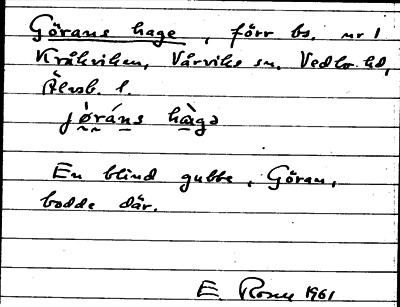 Görans hage, förr bs. nr 1
Kråkviken, Vårviks sn. Vedbo hd,
Älvsb. l.
jø̀ráns hàgə
En blind gubbe, Göran,
bodde där.
E. Rosen 1961